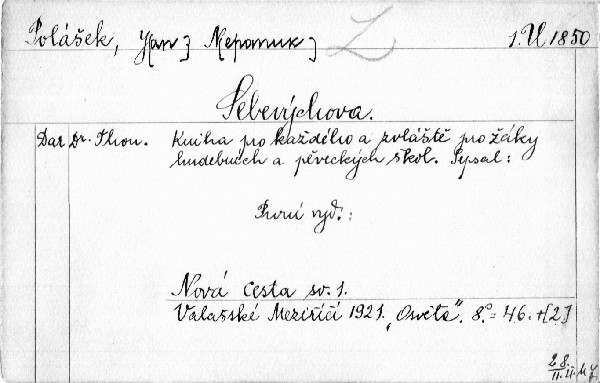 Polášek, Jan] Nepomuk] 1. U 1850
Sebevýchova.
Dar Dr. Thon. Kniha pro každého a zvláště pro žáky
hudebních a pěveckých škol. Sepsal:
První vyd.:
Nová cesta sv. 1.
Valašské Meziříčí 1921. „Osvěta". 8.° = 46. + [2]
28.